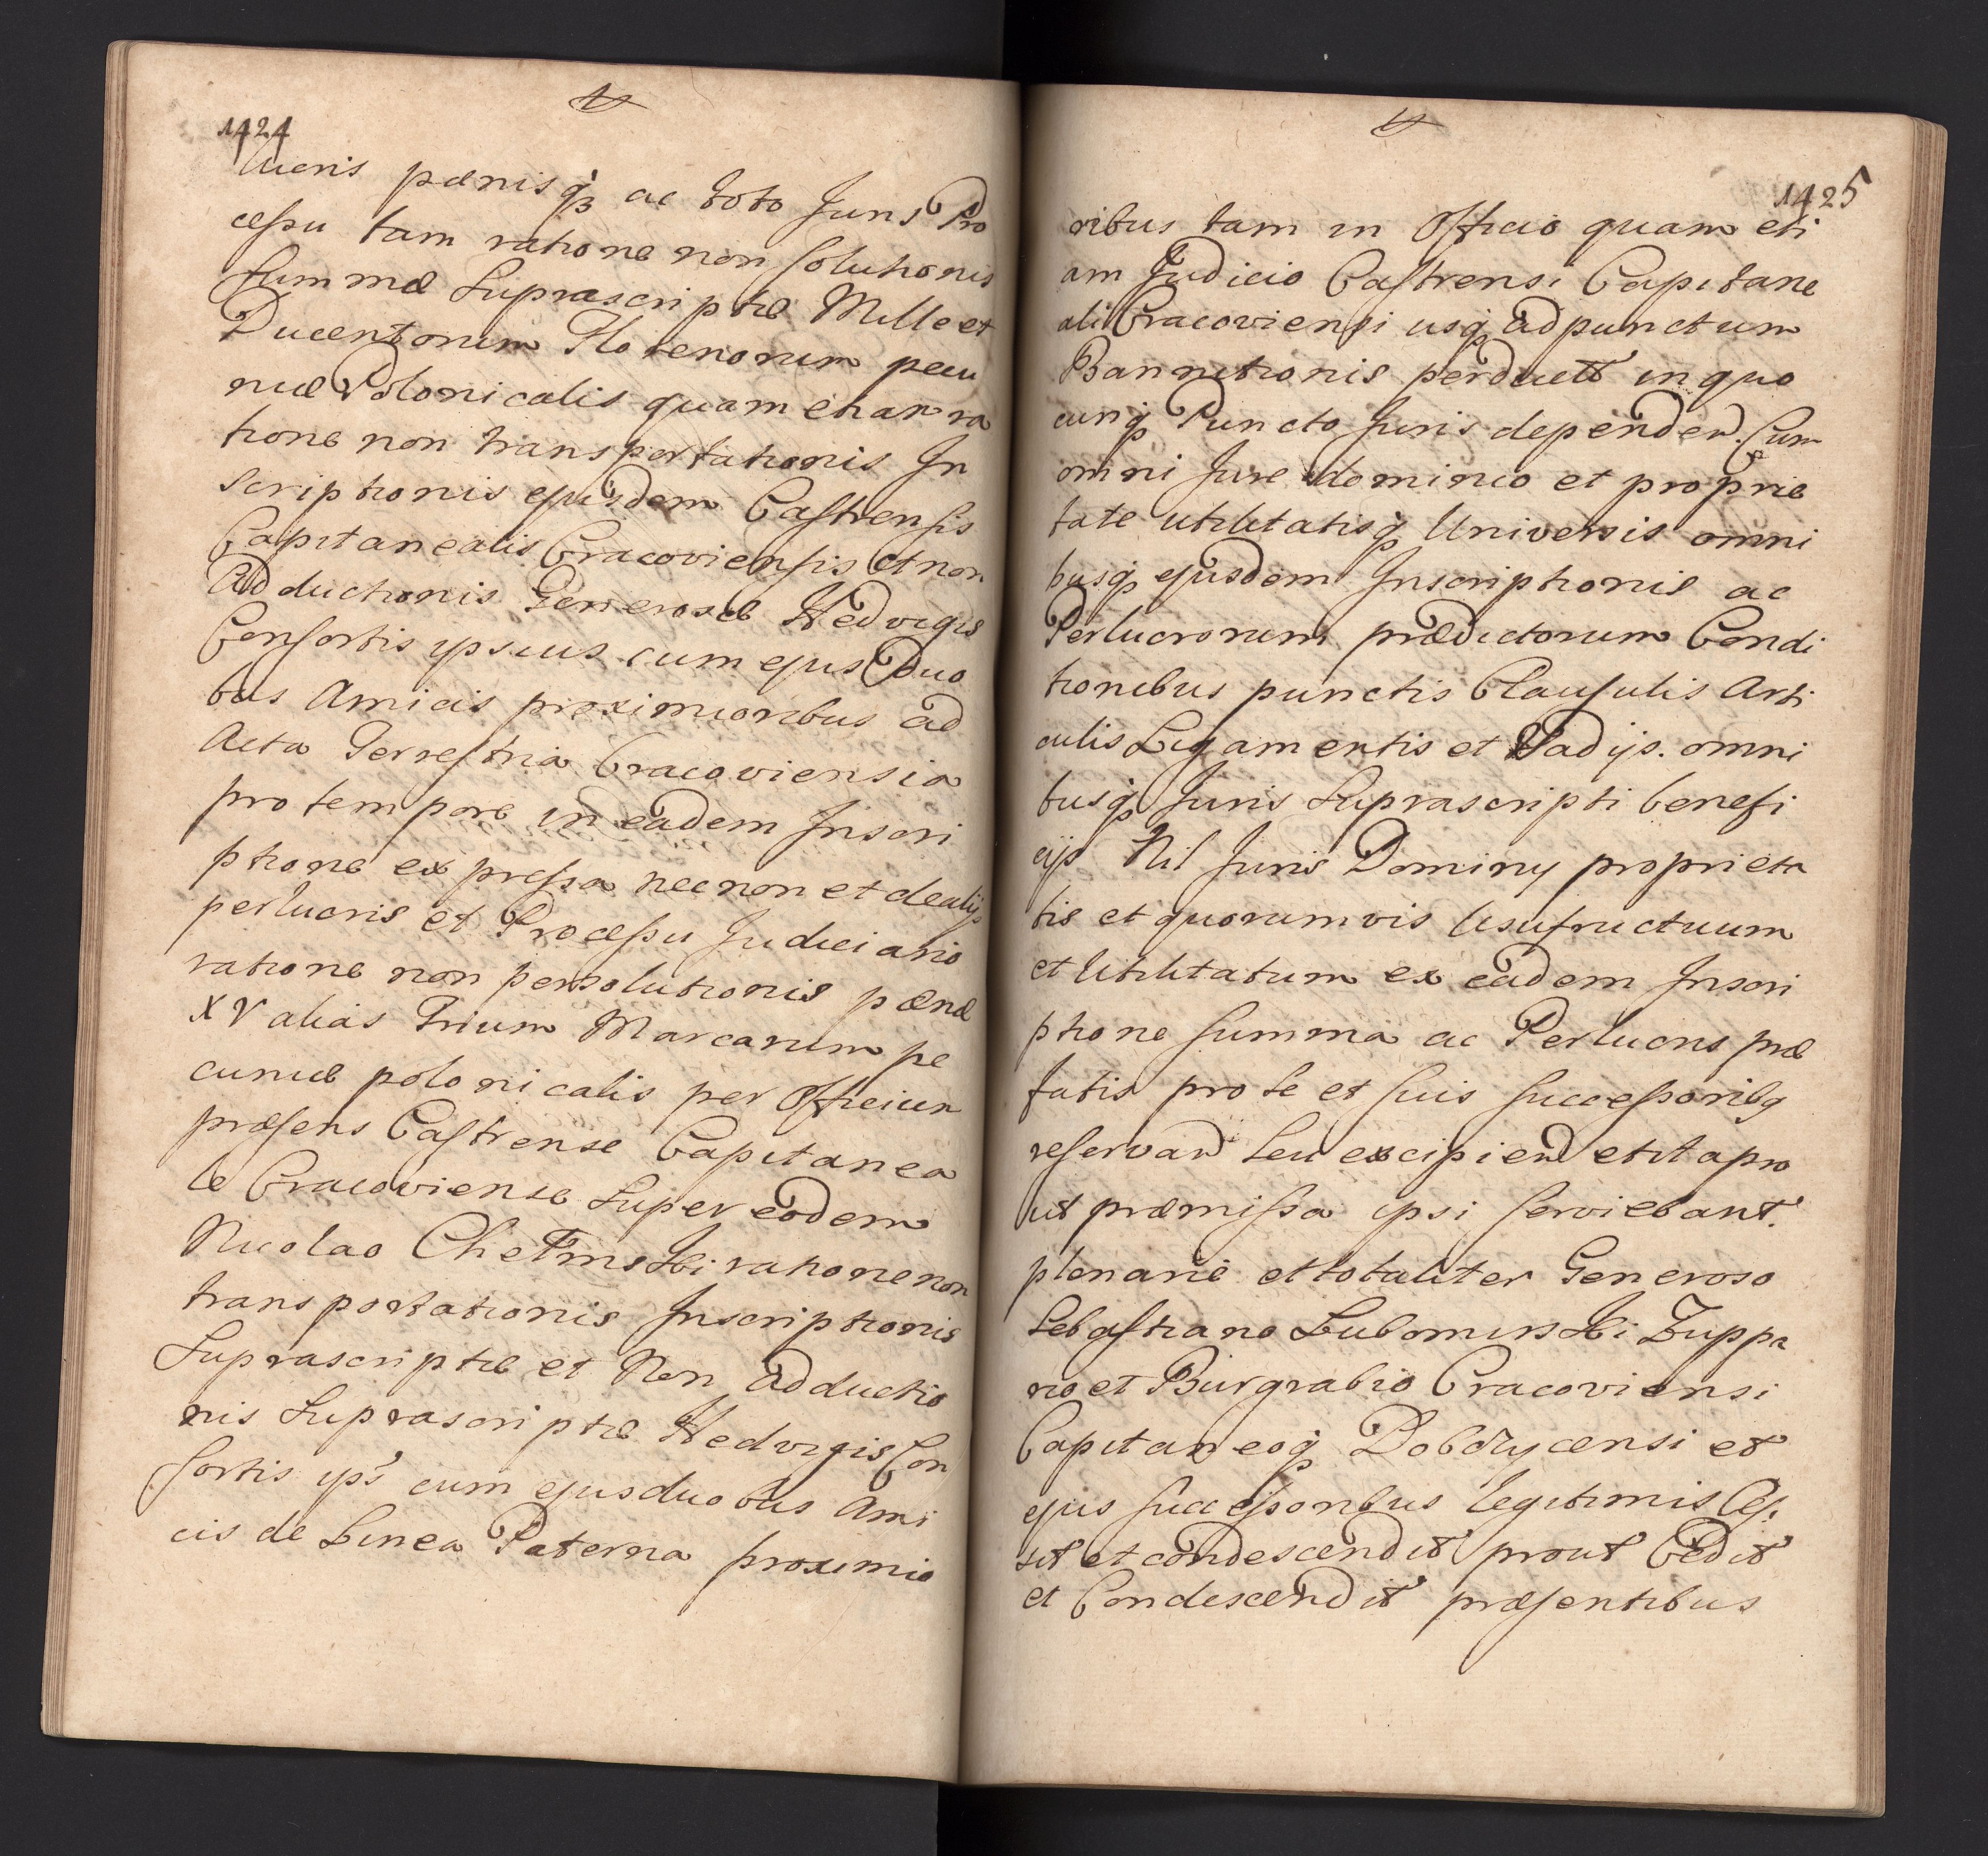 1424
lucris pœnisq́ꝫ ac toto Juris Pro
cessu tam ratione non solutionis
Summæ Suprascriptæ Mille et
Ducentorum Florenorum pecu
niæ Polonicalis quam etiam ra
tione non transportationis In
scriptionis ejusdem Castrensis
Capitanealis Cracoviensis et non
Adductionis Generosæ Hedvigis
Consortis ipsius cum ejus Duo
bus Amicis proximioribus ad
Acta Terrestria Cracoviensia
pro tempore in eadem Inscri
ptione expressa necnon et de alijs
perlucris et Processu Judiciario
ratione non persolutionis pœnæ
XV alias Trium Marcarum pe
cuniæ polonicalis per Officium
præsens Castrense Capitanea
le Cracoviense Super eodem
Nicolao Chełmski ratione non
transportationis Inscriptionis
Suprascriptæ et Non adductio
nis Suprascriptæ Hedvigis Con
sortis ips' cum ejus duobus Ami
cis de Linea Paterna proximio
1425
ribus tam in Officio quam eti
am Judicio Castrensi Capitane
ali Cracoviensi usq́ꝫ ad punctum
Bannitionis perductt in quo
cunq́ꝫ Puncto Juris dependen. Cum
omni Jure dominio et proprie
tate utilitatisq́ꝫ Universis omni
busq́ꝫ ejusdem Inscriptionis ac
Perlucrorum prædictorum Condi
tionibus punctis Clausulis Arti
culis Ligamentis et Vadijs. omni
busq́ꝫ Juris Suprascripti benefi
cijs Nil Juris Dominij proprieta
tis et quorumvis Usufructuum
et Utilitatum ex eadem Inscri
ptione Summa ac Perlucris præ
fatis pro se et suis successoribꝫ
reservand Seu excipiend et ita pro
ut præmissa ipsi serviebant.
plenarie et totaliter Generoso
Sebastiano Lubomirski Zuppa
rio et Burgrabio Cracoviensi
Capitaneoq́ꝫ Dobczycensi et
ejus successoribus legitimis Ces
sit et condescendit prout Cedit
et Condescendit præsentibus